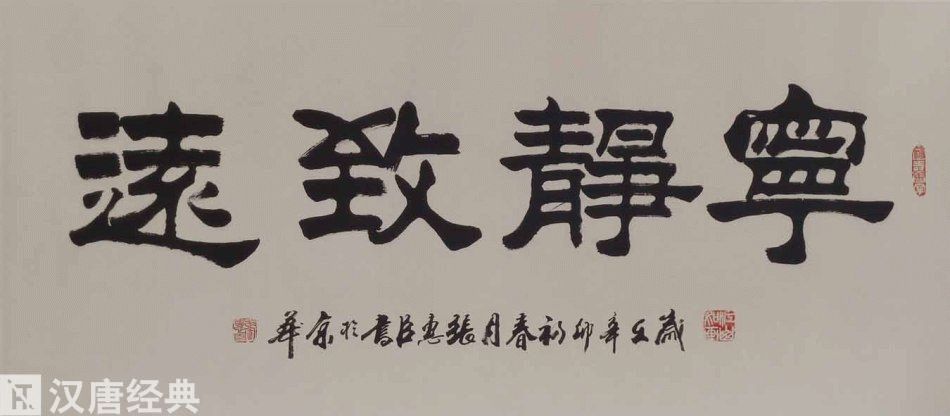 寧靜致遠
歲在辛卯初春月張惠臣書於京華
汉唐经典